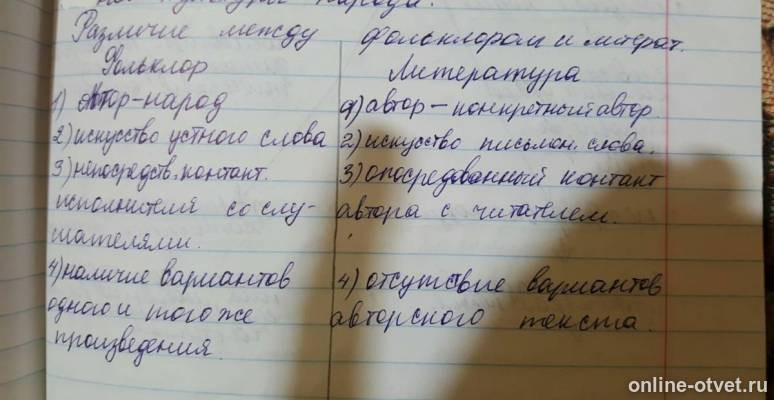 народа.
Различие между фольклором и литерат.
Фольклор
Литература
1) автор-народ
2) искусство устного слова
3) непосредств. контакт.
исполнителя со слу-
шателями.
4) наличие вариантов
одного и того же
произведения.
1) автор – конкретный автор.
2) искусство письмен. слова.
3) опосредованный контакт
автора с читателем.
4) отсутствие вариантов
авторского текста.
online-otvet.ru